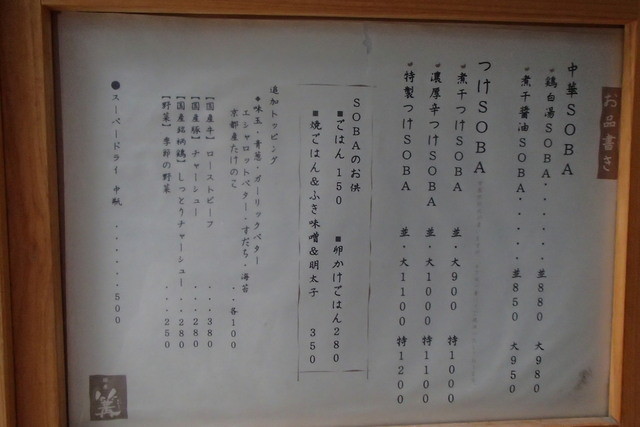 お品書き
中華SOBA
鶏白湯SOBA・・・・・並880 大980
煮干醤油SOBA・・・・・並850 大950
つけSOBA
煮干つけSOBA 並・大900 特1000
濃厚辛つけSOBA 並・大1000 特1100
特製つけSOBA 並・大1100 特1200
SOBAのお供
■ごはん 150 ■卵かけごはん280
■焼ごはん&ふき味噌&明太子 350
追加トッピング
◆味玉・青葱・ガーリックバター
エシャロットバター・すだち・海苔
京都産たけのこ ・・各100
【国産牛】ローストビーフ ・・・380
【国産豚】チャーシュー ・・・280
【国産銘柄鶏】しっとりチャーシュー ・・・280
【野菜】季節の野菜 ・・・250
●スーパードライ 中瓶 ・・・・・・・500
篝